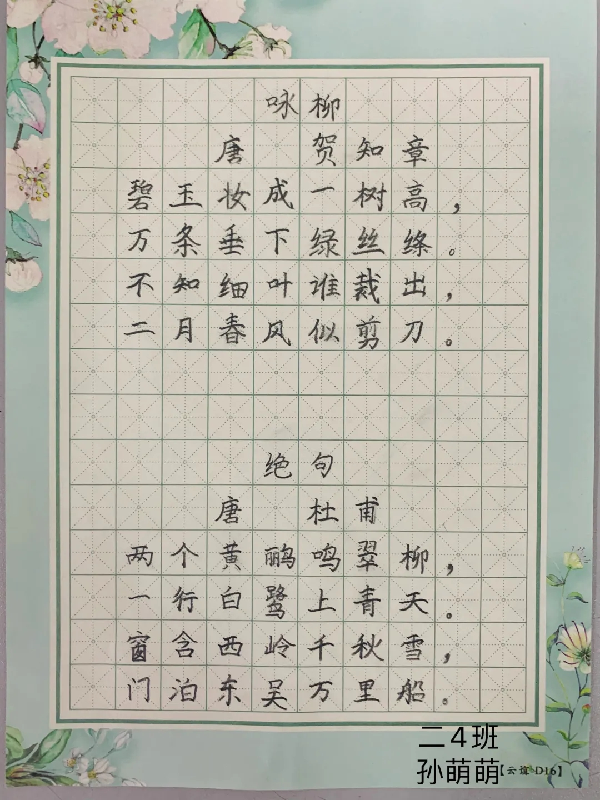 咏柳
唐 贺知章
碧玉妆成一树高，
万条垂下绿丝绦。
不知细叶谁裁出，
二月春风似剪刀。
绝句
唐 杜甫
两个黄鹂鸣翠柳，
一行白鹭上青天。
窗含西岭千秋雪，
门泊东吴万里船。
二4班
孙萌萌